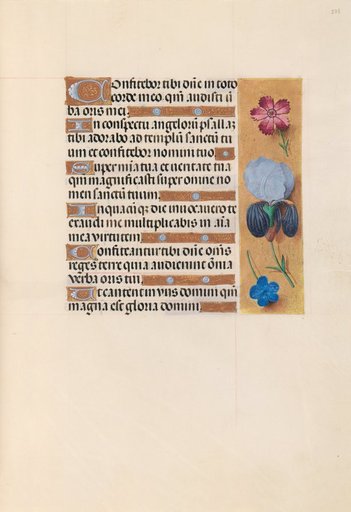 Confitebor tibi dñe in toto
corde meo, qm̃ audisti ũ
ba oris mei.
In conspectu angelorũ psallã ꝫ
tibi adorabo ad templũ sanctũ tu
um et confitebor nomini tuo
Super mia tua et ueritate tua
qm̃ magnificasti super omne no
men sanctũ tuum.
In quacũq̃ die inuocauero te
exaudi me multiplicabis in aĩa
mea virtutem
Confiteantur tibi dñe om̃s
reges terre quia audierunt om̃ia
verba oris tui.
Et cantent in viis domini qm̃
magna est gloria domini.